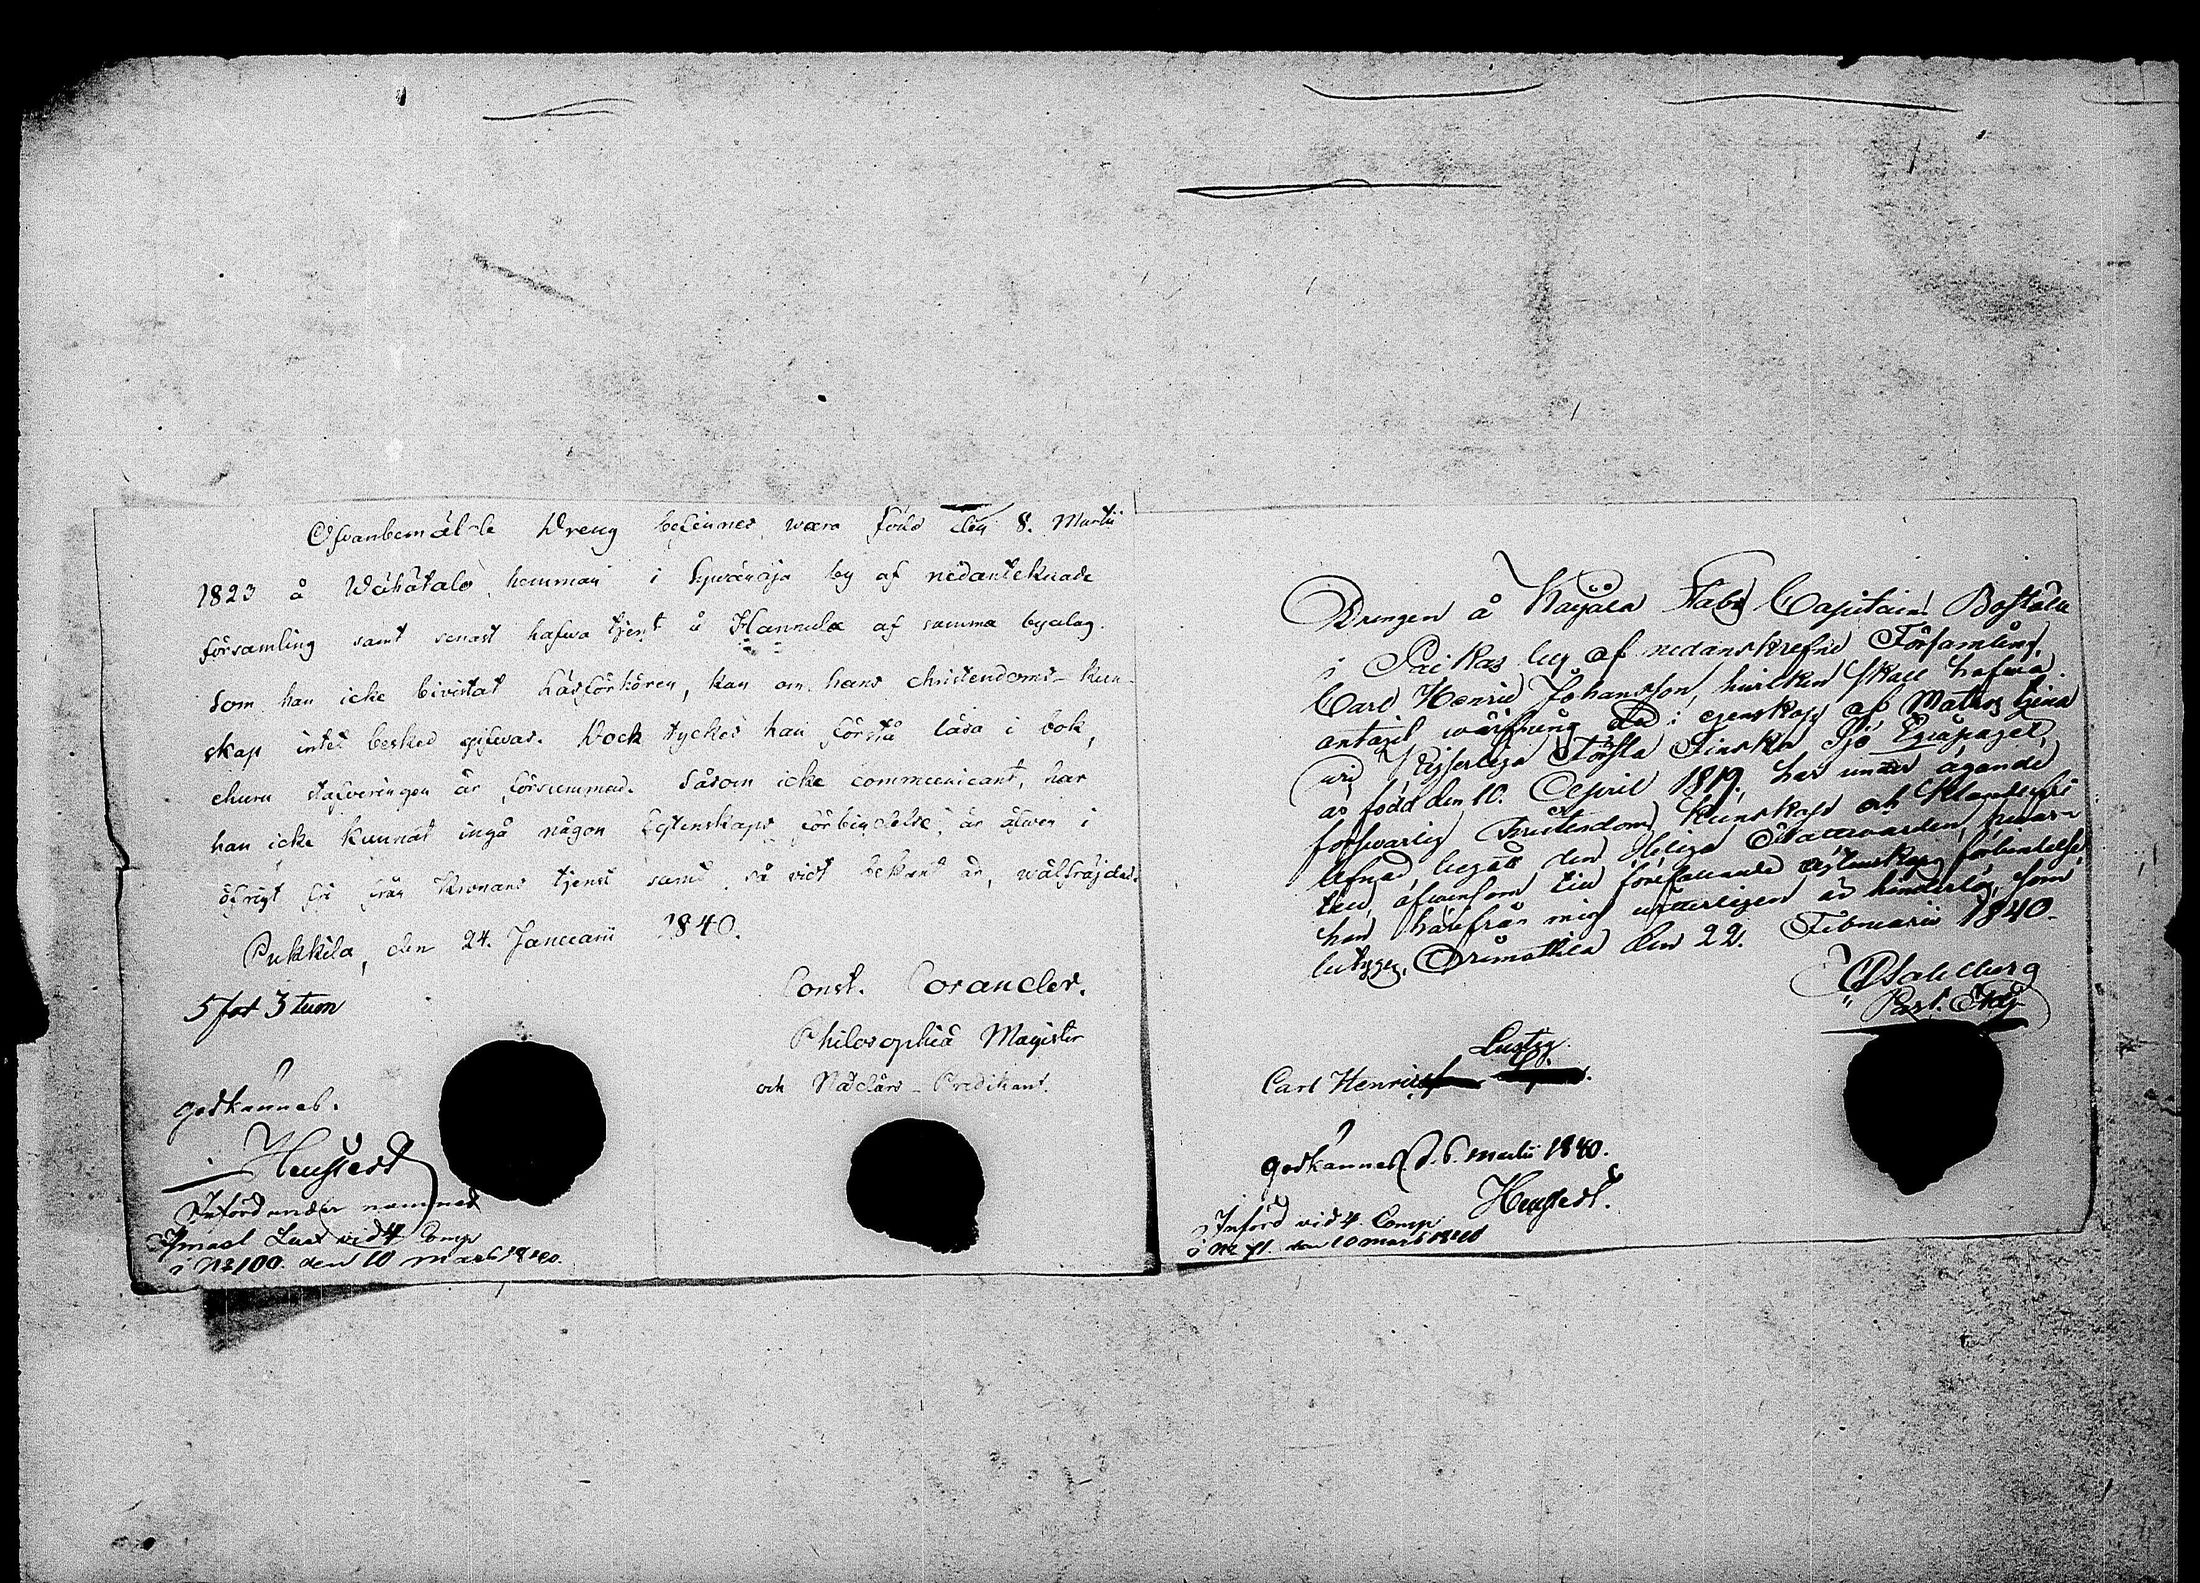 Ofvanbemälde Dreng befinnes wara född den 8. Martii
1823 å Wähätalo hemman i Syvänoja by af nedantecknade
församling samt senast hafwa tjent å Hannula af samma byalag.
Som han icke bivistat Läsförhören, kan om hans christendoms-kun-
skap intet besked gifwas. Dock tyckes han förstå läsa i bok,
ehuru stafveringen är försummad. Såsom icke communicant, har
han icke kunnat ingå någon Egtenskaps förbindelse, är äfwen i
öfrigt fri från Kronans tjenst samt, så vidt bekant är, wälfräjdad.
Pukkila, den 24. Januarii 1840.
Const. Corander.
Philosophiæ Magister
och Nådårs-Predikant.
5 fot 3 tum
Godkännes.
Införd under namnet
Ismael Lax vid 4 Comp
i No 100. den 10 Mars 1840.
Drengen å Stabs Capitains Boställe
i Paikas by af nedanskrefne Församling,
Carl Henric Johansson, hvilken skall hafwa
antagit wärfning att i egenskap af Matros tjena
wid Kejserliga Första Finska Sjö Equipaget,
är född den 10. April 1819, har under ägande
försvarlig Christendoms kunskap och Klanderfri
lefnad, begått den Heliga Nattvarden, hvar-
till, äfvensom till förefallande ägtenskaps förbindelse
han härifrån mig witterligen är hinderlös, som
betygas. Orimattila den 22. Februarii 1840.
Past.
Lustig.
Carl Henric
Godkännes d. 6 Martii 1840.
Införd vid 4. Comp
i No 71. den 10 Mars 1840